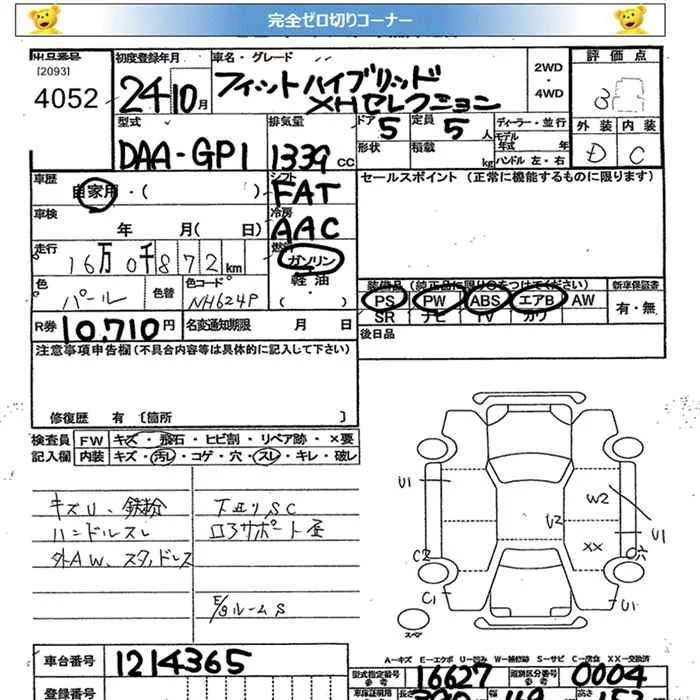 完全ゼロ切りコーナー
出品番号 初度登録年月 車名・グレード 2WD・4WD 評価点
[2093]
4052 24 10月 フィットハイブリッド 3
XHセレクション
型式 排気量 ドア 5 定員 5人 ディーラー・並行 外装 内装
形状 積載 kg モデル年式 年
DAA-GP1 1339cc ハンドル 左・右 D C
車歴 シフト セールスポイント (正常に機能するものに限ります)
自家用・( ) FAT
車検 冷房
年 月( 日) AAC
走行 燃料
16万0千872km ガソリン
色 色替 色コード 軽油 装備品 (純正品に限り○をつけてください) 新車保証書
パール NH624P ・( ) PS PW ABS エアB AW 有・無
SR ナビ TV カワ
R券 10,710円 名変通期限 月 日 後日品
注意事項申告欄(不具合内容等は具体的に記入して下さい)
修復歴 有 〔箇所 〕
検査員 FW キズ・飛石・ヒビ割・リペア跡・×要
記入欄 内装 キズ・汚レ・コゲ・穴・スレ・キレ・破レ
キズU、鉄粉 下廻りSC
ハンドルスレ ロアサポート歪
外AW、スタッドレス
E/GルームS
U1 W2
U2 U1
XX
C2 穴
C1 U1
スペア
A-キズ E-エクボ U-凹み W-補修跡 S-サビ C-腐食 XX-交換済
車台番号 1214365 型式指定番号 参考 16627 類別区分番号 参考 0004
登録番号 車検証明用 参考 長さ 高さ